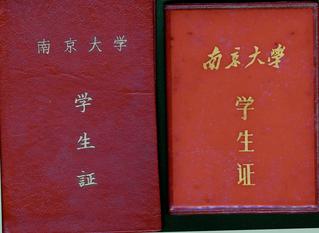 南京大学
学生証
南京大學
学生证